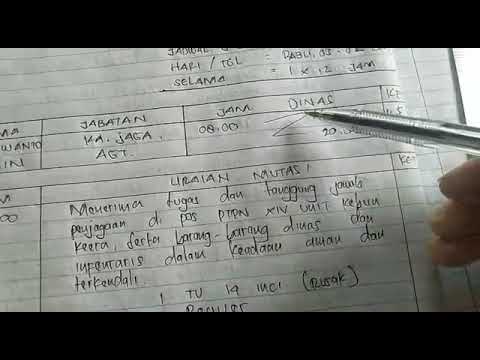 JADWAL
HARI / TGL = RABU, 03
SELAMA = 1 X 12 JAM
JABATAN JAM DINAS
WANTO KA. JAGA. 08.00
AGT. 20.
URAIAN MUTASI
Menerima tugas dan tanggung jawab
penjagaan di pos PTPN XIV UNIT Kebun
Keera, serta barang-barang dinas dan
inventaris dalam keadaan aman dan
terkendali.
1 TV 14 INCI (Rusak)